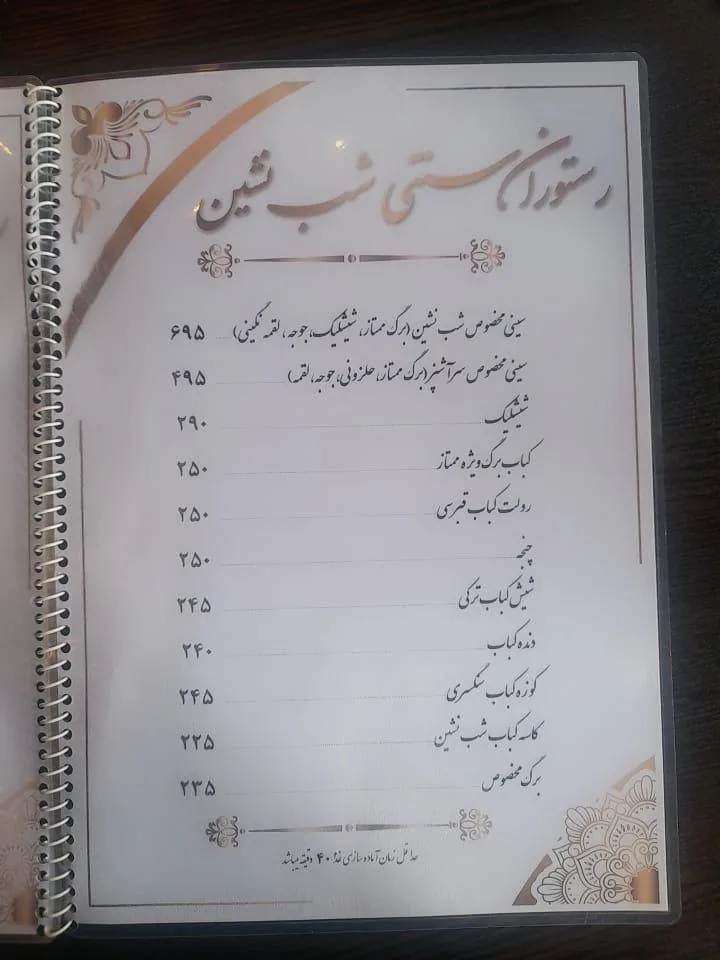 رستوران سنتی شب نشین
سینی مخصوص شب نشین (برگ ممتاز، شیشلیک، جوجه، لقمه نگینی) ۶۹۵
سینی مخصوص سرآشپز (برگ ممتاز، حلزونی، جوجه، لقمه) ۴۹۵
شیشلیک ۲۹۰
کباب برگ ویژه ممتاز ۲۵۰
رولت کباب قبرسی ۲۵۰
چنجه ۲۵۰
شیش کباب ترکی ۲۴۵
دنده کباب ۲۴۰
کوزه کباب سنگسری ۲۴۵
کاسه کباب شب نشین ۲۲۵
برگ مخصوص ۲۳۵
حداقل زمان آماده سازی غذا ۴۰ دقیقه میباشد